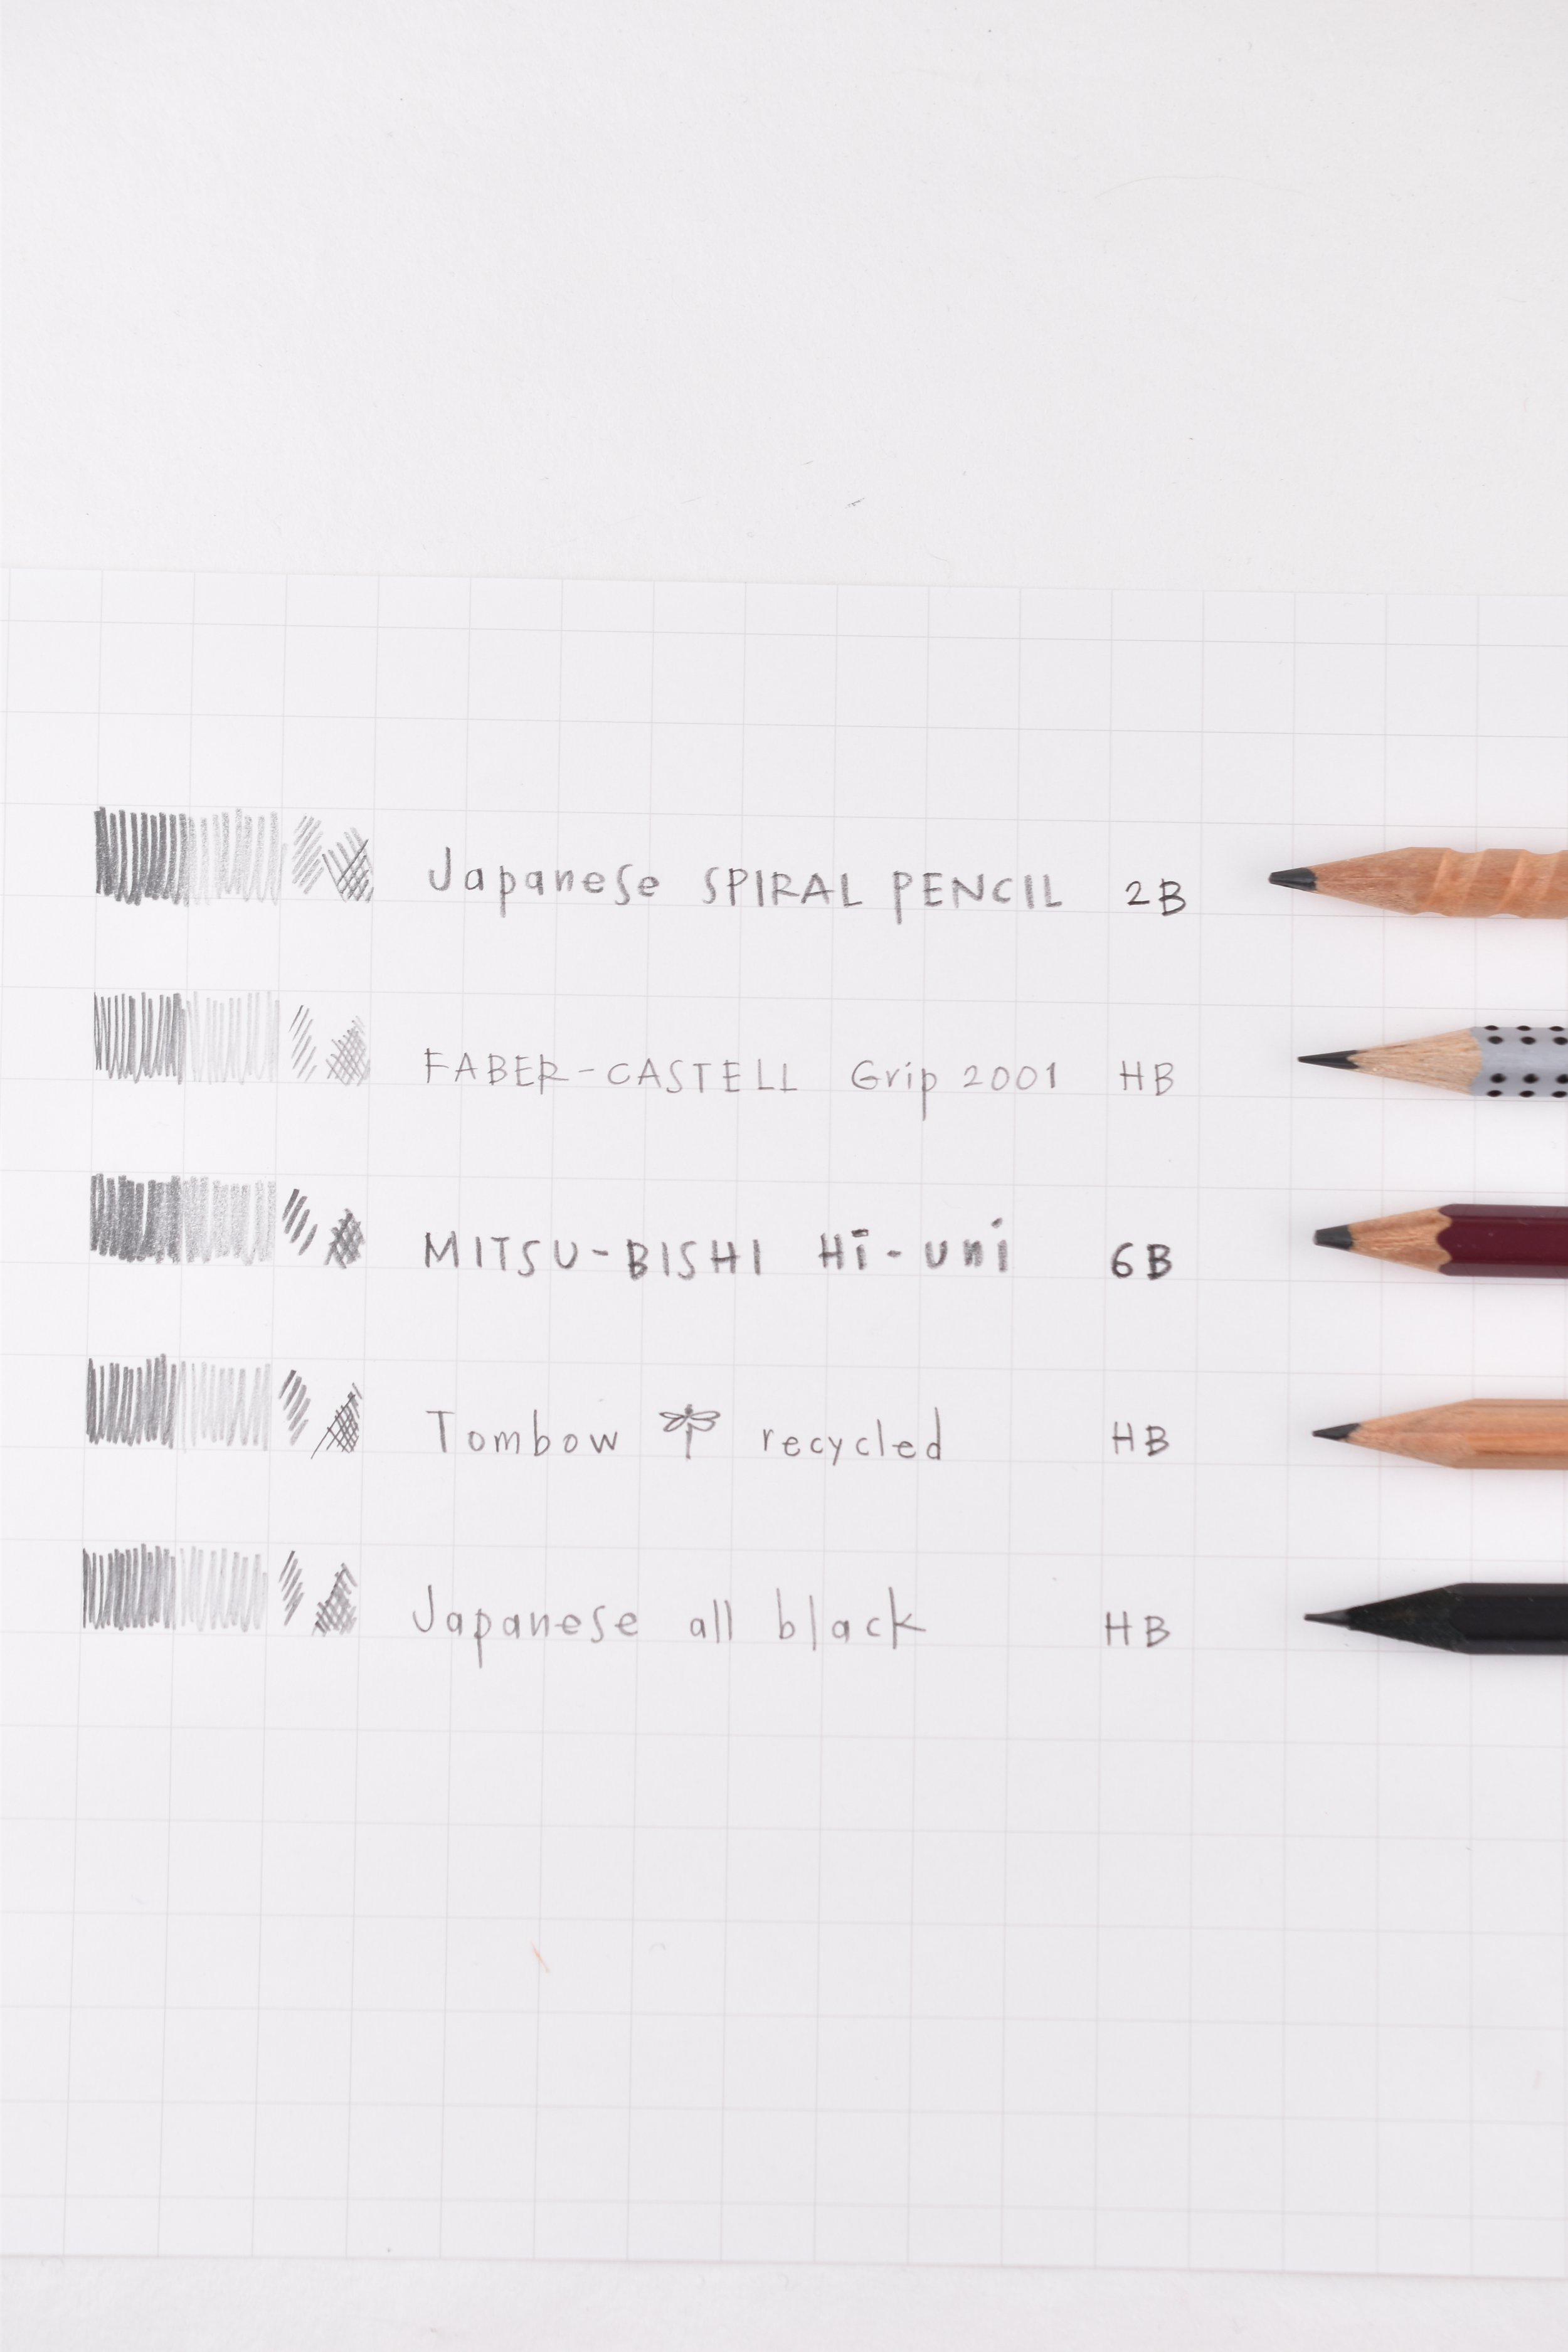 Japanese SPIRAL PENCIL 2B
FABER-CASTELL Grip 2001 HB
MITSU-BISHI Hi-uni 6B
Tombow recycled HB
Japanese all black HB